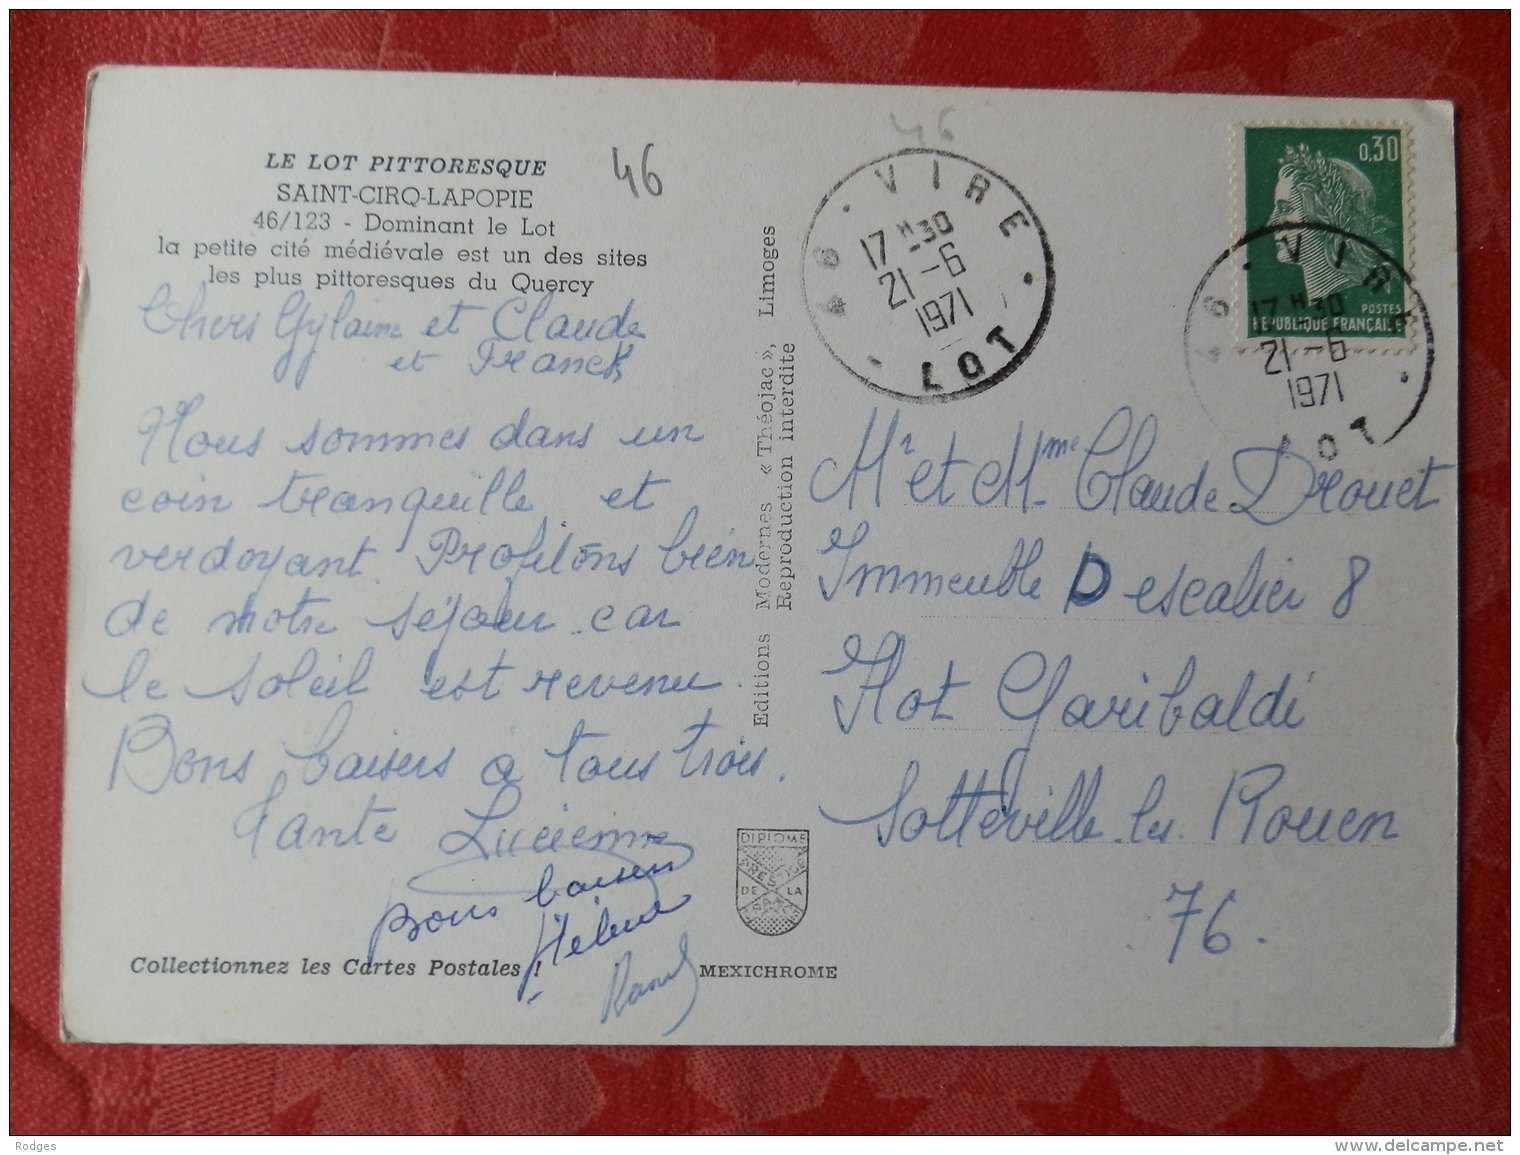 LE LOT PITTORESQUE
SAINT-CIRQ-LAPOPIE
46/123 - Dominant le Lot
la petite cité médiévale est un des sites
les plus pittoresques du Quercy
46
Chers Gylaine et Claude
et Franck
Nous sommes dans un
coin tranquille et
verdoyant. Profitons bien
de notre séjour car
le soleil est revenu.
Bons baisers à tous trois.
Tante Lucienne
Bons baisers
Hélène
Raoul
Collectionnez les Cartes Postales !
MEXICHROME
Editions Modernes « Théojac », Limoges
Reproduction interdite
DIPLOME
PRESTIGE
DE LA
FRANCE
46
46 · VIRE ·
17 H 30
21 - 6
1971
LOT
0,30
POSTES
REPUBLIQUE FRANÇAISE
46 · VIRE ·
17 H 30
21 - 6
1971
LOT
Mr et Mme Claude Drouet
Immeuble D escalier 8
Ilot Garibaldi
Sotteville les Rouen
76.
Rodges
www.delcampe.net